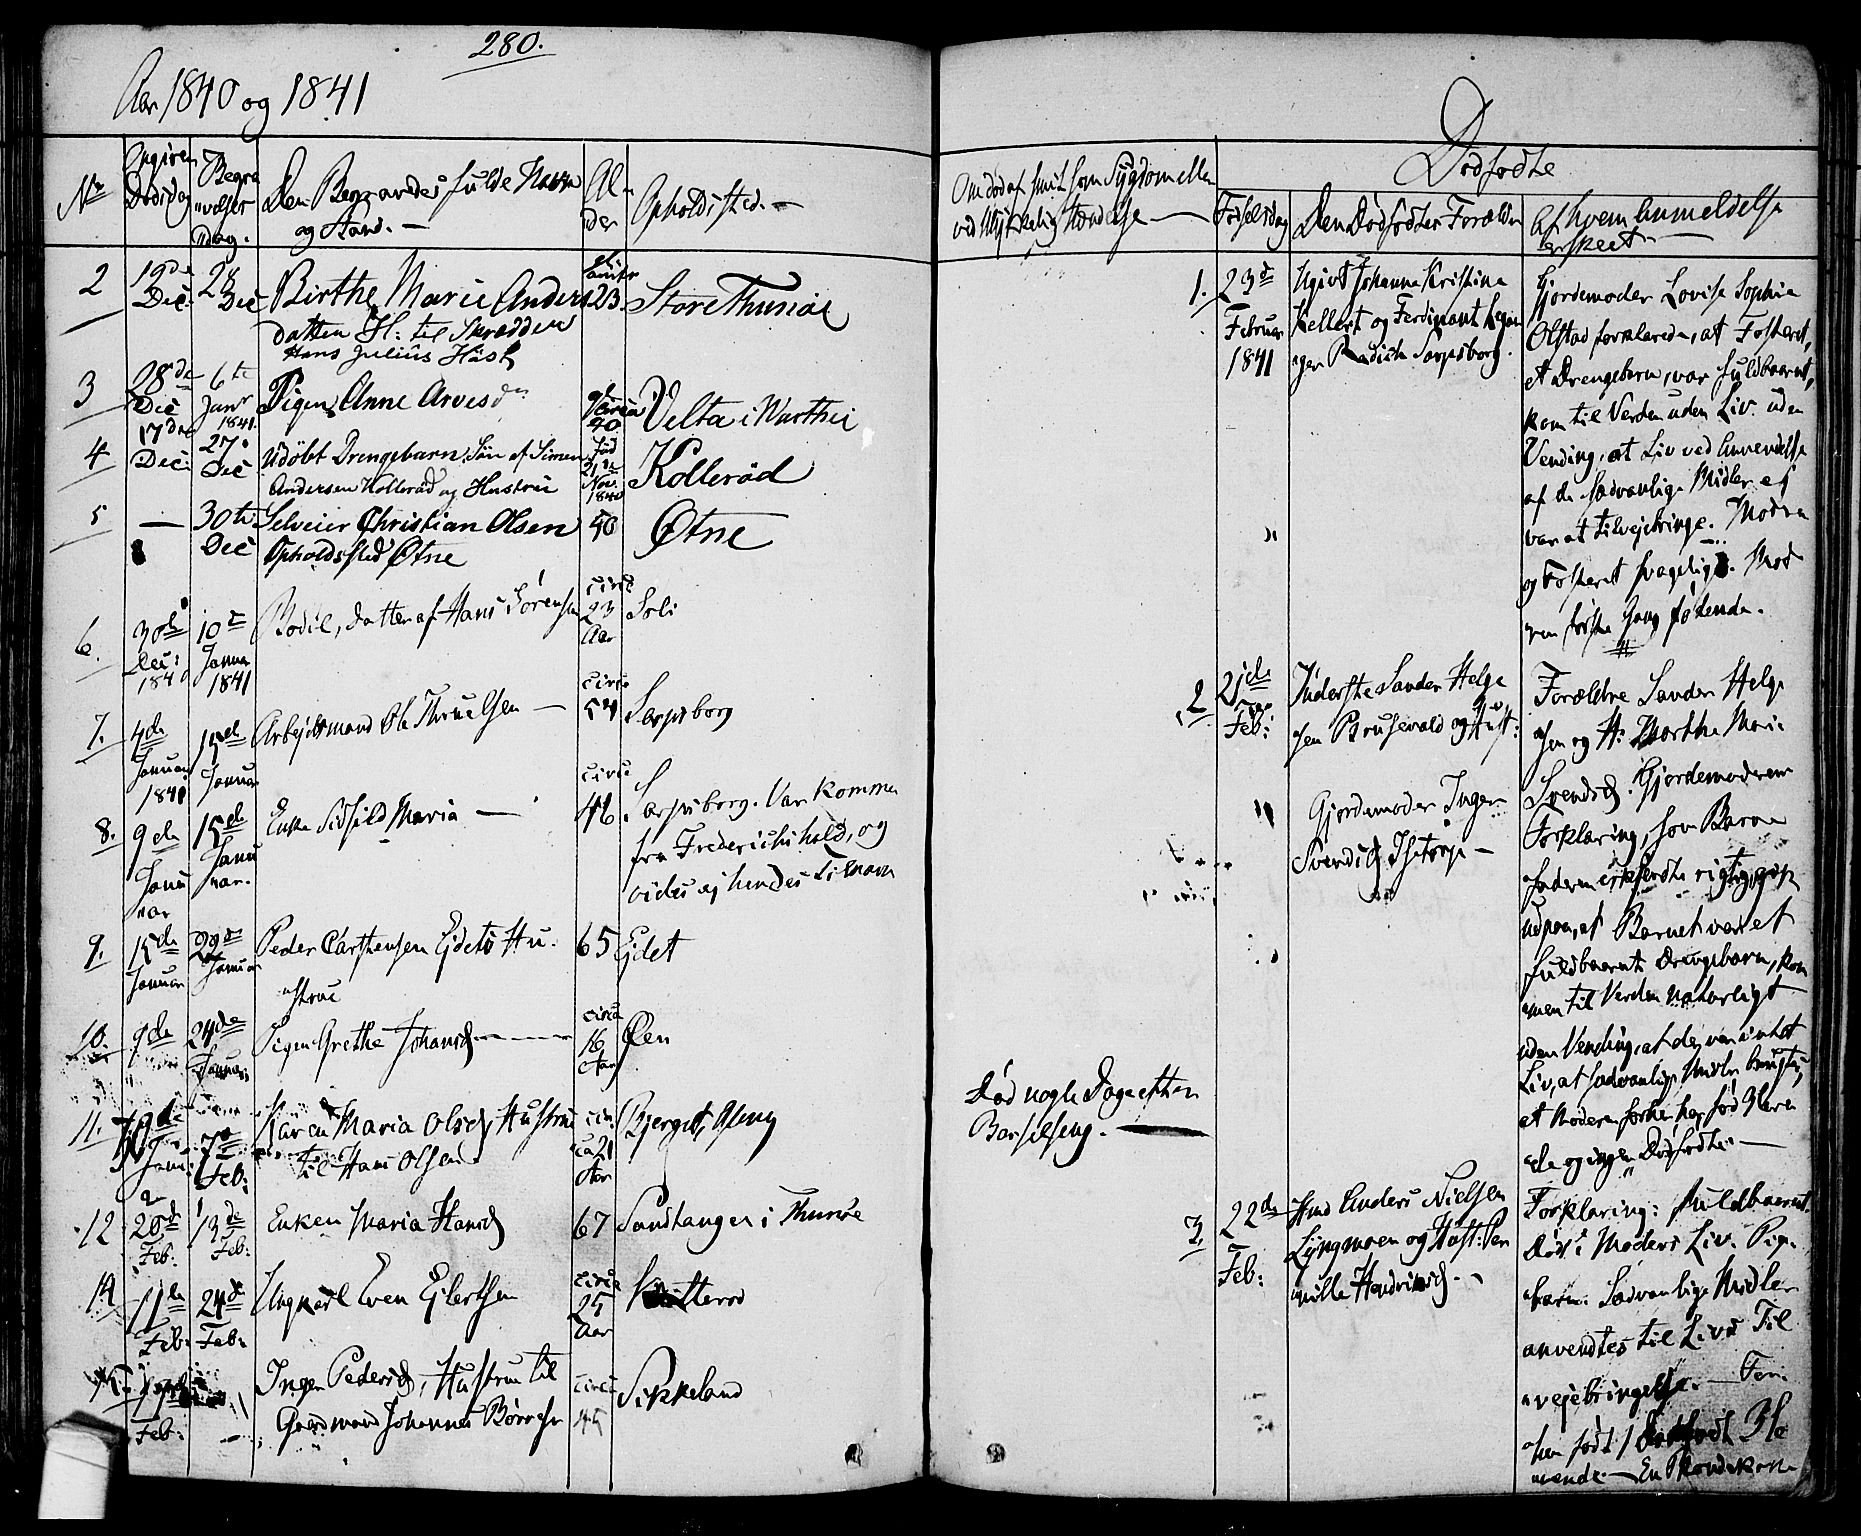 280.
Aar 1840 og 1841
No
Angiven
Dødsdag
Begra
velses
Dag.
Den Begravedes fulde Navn
og Stand.
Al-
der
Opholdssted.
2
19de
Dec:
28
Dec
Birthe Marie Anders
datter H: til Skrædder
Hans Julius Häsk
23.
Store Thunøe
3
28de
Dec
6te
Janr
1841.
Pigen Anne Arvesdr
40
Velta i Warthei
4
17de
Dec:
27.
Dec
Udöbt Drengebarn Sön af Simen
Andersen Kolleröd og Hustrue
föd
21de
Nov.
1840
Kolleröd
5
—
30te
Dec
Selveier Christian Olsen
Opholdssted Øtne
50
Øtne
6.
30de
Dec:
1840
10de
Janua
1841
Bodil, datter af Hans Sörensen
circa
23
Aar
Soli
7.
4de
Januar
1841
15de
Januar
Arbejdsmand Ole Thruelsen —
circa
54
Sarpsborg
8.
9de
Janu
uar
15de
Janu
uar.
Enke Sidsild Maria —
circa
46.
Sarpsborg. Var kommen
fra Frederichshald, og
vides ej hendes Tilnavn
9.
15de
Januar
22de
Januar
Peder Carstensen Ejdets Hu-
strue
65
Ejdet
10.
9de
24de
Januar
Pigen Grethe Johansd
circa
16
Aar
Øen
11.
Janu:
7de
Feb:
Karen Maria Olsd, Hustrue
til Hans Olsen
cir-
ca 21
Aar
Bjerget,
12
Feb:
13de
Feb:
Enken Maria Hansd
67
Sandtangen i Thunøe
14
11te
Feb:
24de
Feb:
Ungkarl Even Ejlertsen
circa
25
Aar
15.
Feb:
Inger Pedersd, Hustrue til
Gaardmand Johannes Börresen
circa
45
Sikkeland
Om död af smitsom Sygdom eller
ved ulykkelig Hændelse —
Död nogle Dage efter
Barselseng. —
Dødfødte
Födselsdag
Den Dødfødtes Forældre
Af hvem Anmeldelse
er skeet
1.
23de
Februar
1841
Ugivt Johanne Kristine
Kellert og Ferdinant
Sarpsborg.
Gjordemoder Lovise Sophie
Olstad forklarede, at Fosteret,
et Drengebarn, var fuldbaaret,
kom til Verden uden Liv. uden
Vending, at Liv ved Anvendelse
af de sædvanlige Midler ej
var at tilvejebringe. Modren
og Fosteret svagelig. Mod
ren første Gang födende.
2.
21de
Feb:
Inderste Sander Helge
sen Brusevald og Hust:
Gjordemoder Inger
Svendsd Istorp —
Forældre Sander Helge
sen og H: Marthe Marie
Svendsd. Gjordemoderens
Forklaring, som Barne
faderen erkjendte rigtig, gik
ud paa, at Barnet var et
fuldbaaret Drengebarn, kom
men til Verden naturligt
uden Vending, at der var intet
Liv, at sædvanlige Midler brugtes,
at Moderen forhen har föd flere
og ingen Dödfödte. —
3.
22de
Feb:
Hmd Anders Nielsen
Lyngmoen og Hust: Per
nille Hendriksd.
Forklaring: fuldbaaret.
Död i Moders Liv. Pige
barn. Sædvanlige Midler
anvendtes til Livs Til
vejebringelse. — For
hen födt 1 Dødfødt 3 le
vende. — En